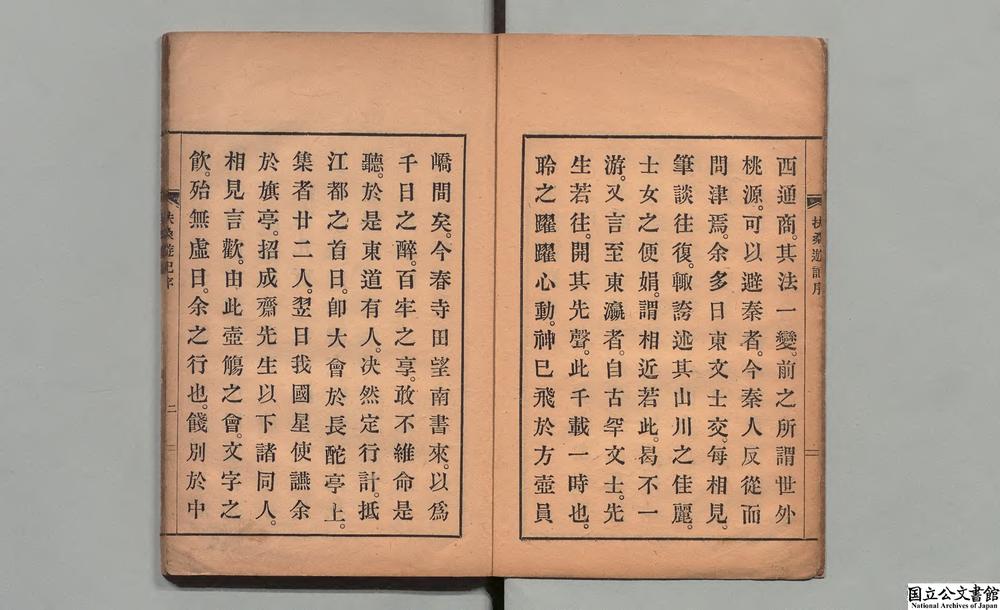 西通商。其法一變。前之所謂世外
桃源。可以避秦者。今秦人反從而
問津焉。余多日東文士交。每相見。
筆談往復。輒誇述其山川之佳麗。
士女之便娟。謂相近若此。曷不一
游。又言至東瀛者。自古罕文士。先
生若往。開其先聲。此千載一時也。
聆之躍躍心動。神已飛於方壺員
扶桑遊記序
嶠間矣。今春寺田望南書來。以爲
千日之醉。百牢之享。敢不維命是
聽。於是東道有人。决然定行計。抵
江都之首日。卽大會於長酡亭上。
集者廿二人。翌日我國星使讌余
於旗亭。招成齋先生以下諸同人。
相見言歡。由此壺觴之會。文字之
飮。殆無虛日。余之行也。餞別於中
扶桑遊記序
二
国立公文書館
National Archives of Japan